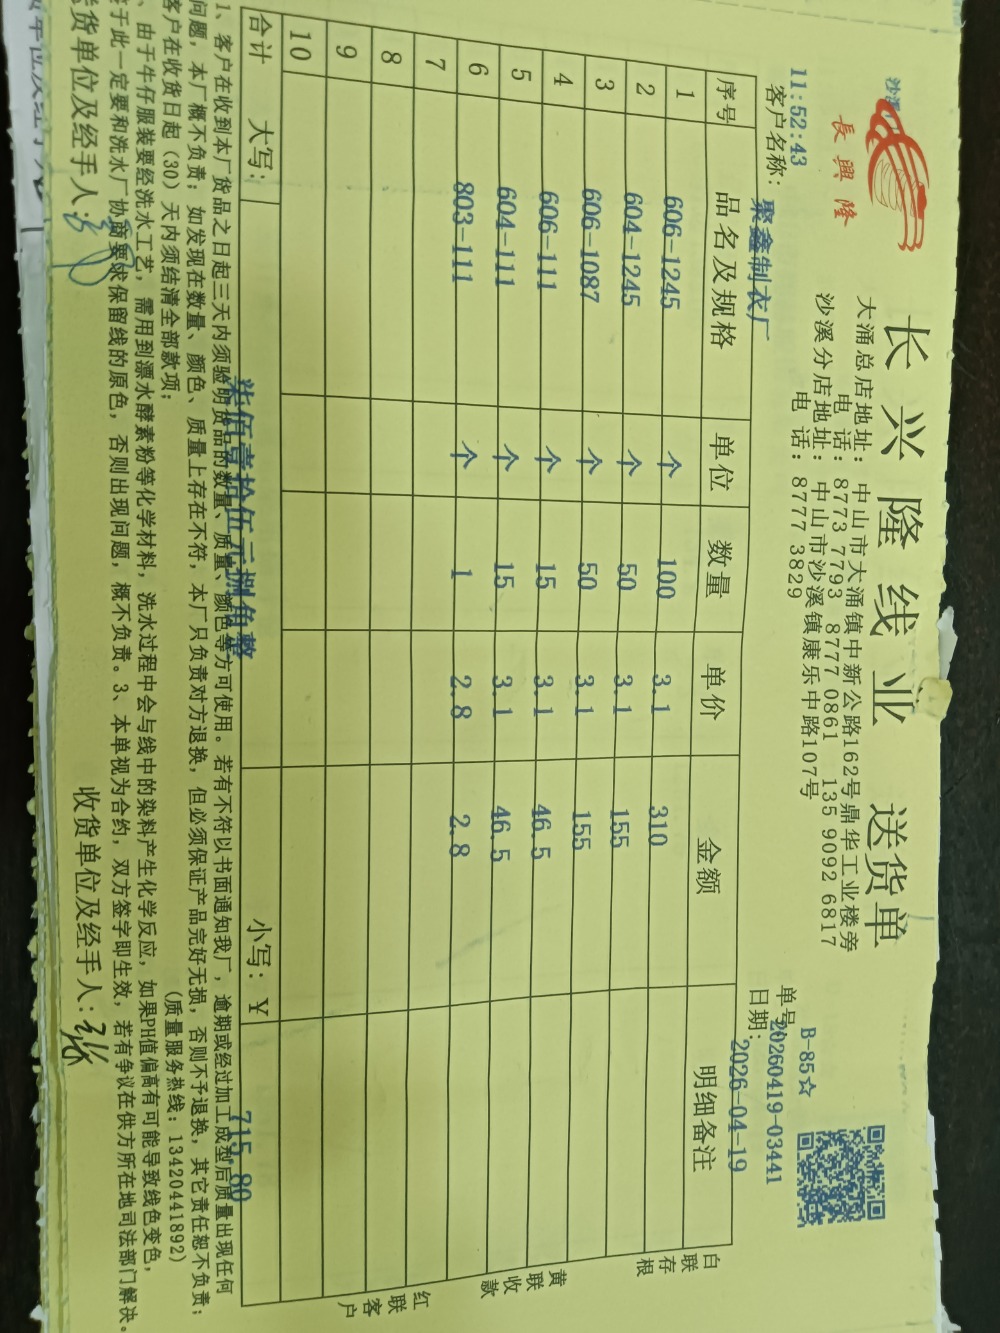 沙溪
長興隆
长兴隆线业 送货单
大涌总店地址：中山市大涌镇中新公路162号鼎华工业楼旁
电 话：8773 7793 8777 0861 135 9092 6817
沙溪分店地址：中山市沙溪镇康乐中路107号
电 话：8777 3829
B-85☆
11:52:43
单号：20260419-03441
客户名称：聚鑫制衣厂
日期：2026-04-19
序号 品名及规格 单位 数量 单价 金额 明细备注
1 606-1245 个 100 3.1 310
2 604-1245 个 50 3.1 155
3 606-1087 个 50 3.1 155
4 606-111 个 15 3.1 46.5
5 604-111 个 15 3.1 46.5
6 803-111 个 1 2.8 2.8
7
8
9
10
合计 大写：柒佰壹拾伍元捌角整 小写：￥715.80
白联存根
黄联收款
红联客户
1、客户在收到本厂货品之日起三天内须验明货品的数量、质量、颜色等方可使用。若有不符以书面通知我厂，逾期或经过加工成型后质量出现任何
问题，本厂概不负责；如发现在数量、颜色、质量上存在不符，本厂只负责对方退换，但必须保证产品完好无损，否则不予退换，其它责任恕不负责；
客户在收货日起（30）天内须结清全部款项；
（质量服务热线：13420441892）
、由于牛仔服装要经洗水工艺，需用到漂水酵素粉等化学材料，洗水过程中会与线中的染料产生化学反应，如果PH值偏高有可能导致线色变色，
于此一定要和洗水厂协商要求保留线的原色，否则出现问题，概不负责。3、本单视为合约，双方签字即生效，若有争议在供方所在地司法部门解决。
货单位及经手人：
收货单位及经手人：张